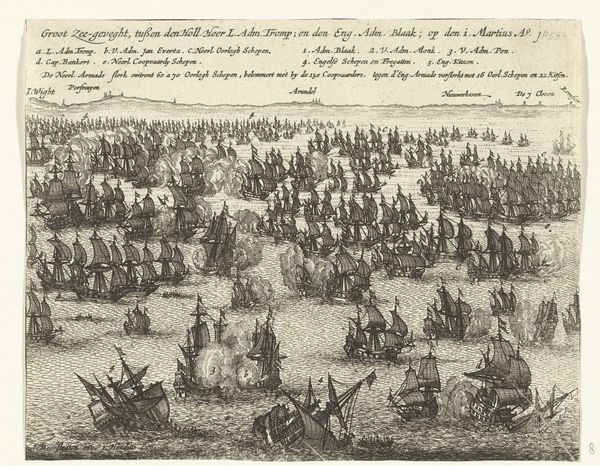 Groot Zee-geveght, tußen den Holl. Heer L. Adm Tromp; en den Eng. Adm. Blaak; op den 1. Martius Aº.
a. L. Adm. Tromp. b. V. Adm. Jan Evertz. C. Neerl. Oorlogh Schepen. 1. Adm. Blaak. 2. V. Adm. Monk. 3. V. Adm. Pen.
d. Cap. Bankert. e. Neerl. Coopvaardy Schepen. 4. Engelse Schepen en Fregatten. 5. Eng. Kitzen.
De Neerl. Armade sterk omtrent 60 a 70 Oorlogh Schepen, belemmert met by de 150 Coopvaarders, tegen d'Eng. Armade versterkt met 16 Oorl. Schepen en 22 Kitsen.
I. Wight Portmuyen Arundel Nieuwerhaven De 7 Cleven
8